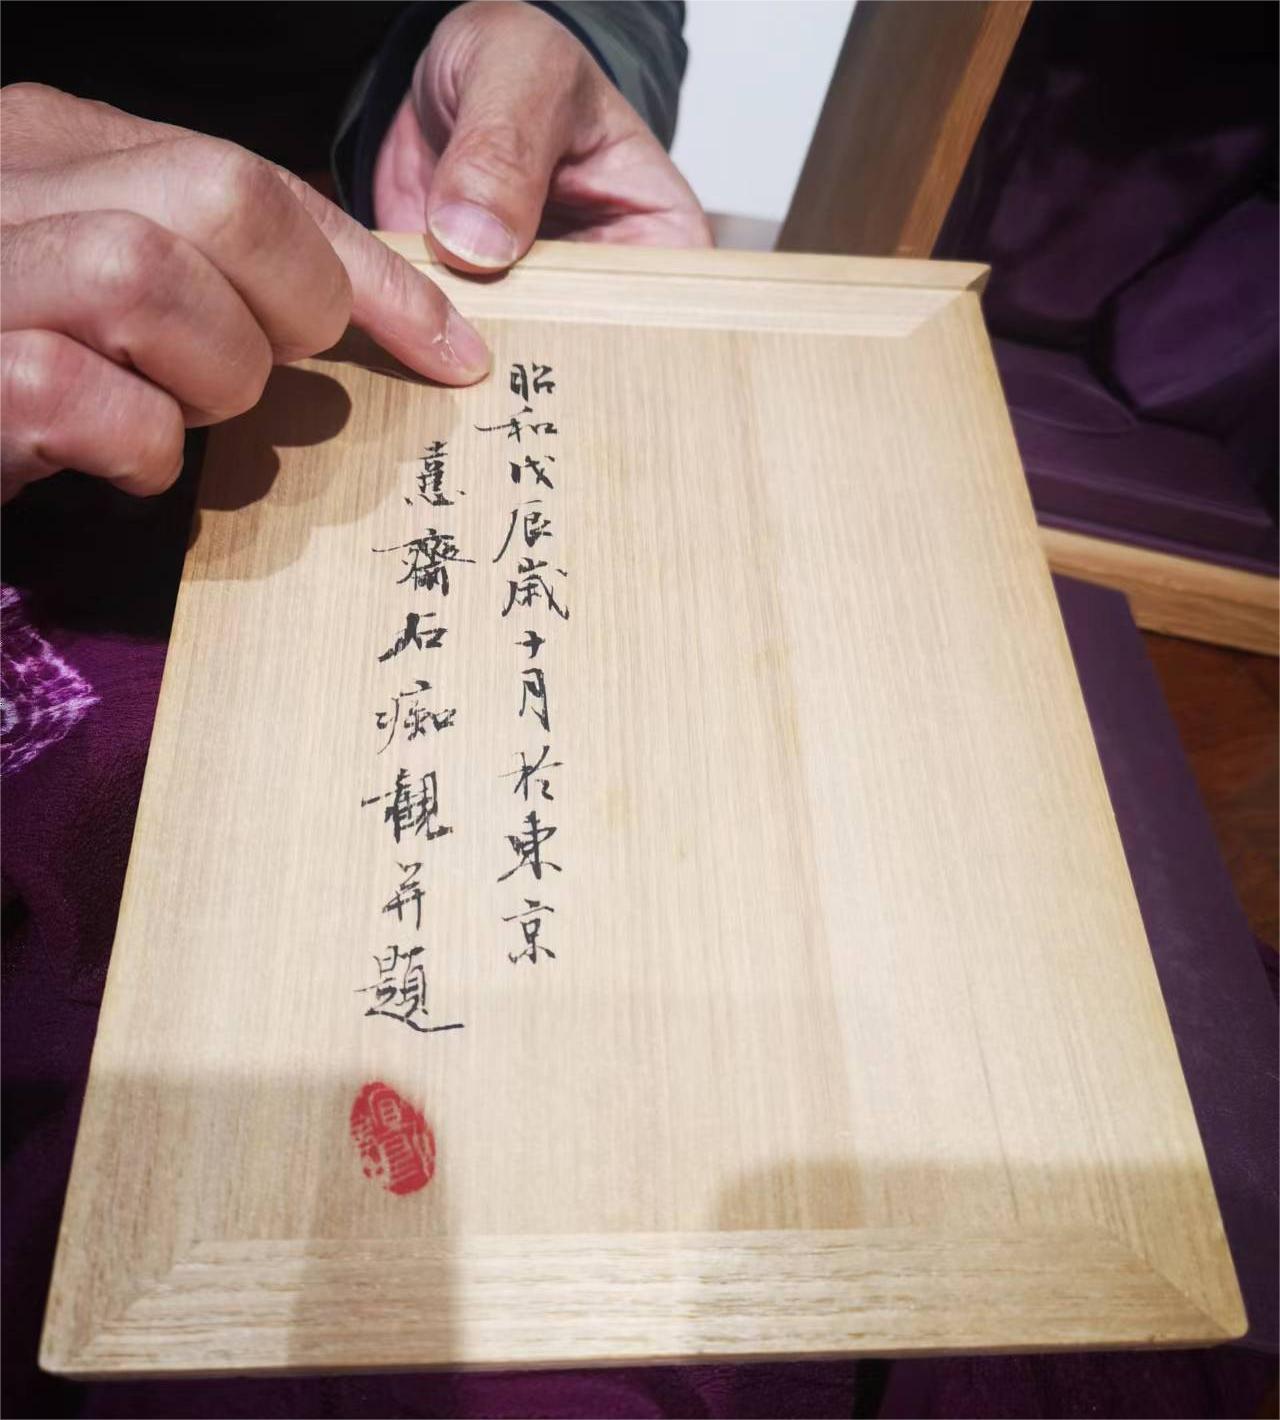 昭和戊辰歲十月於東京
憙齋石痴觀并題